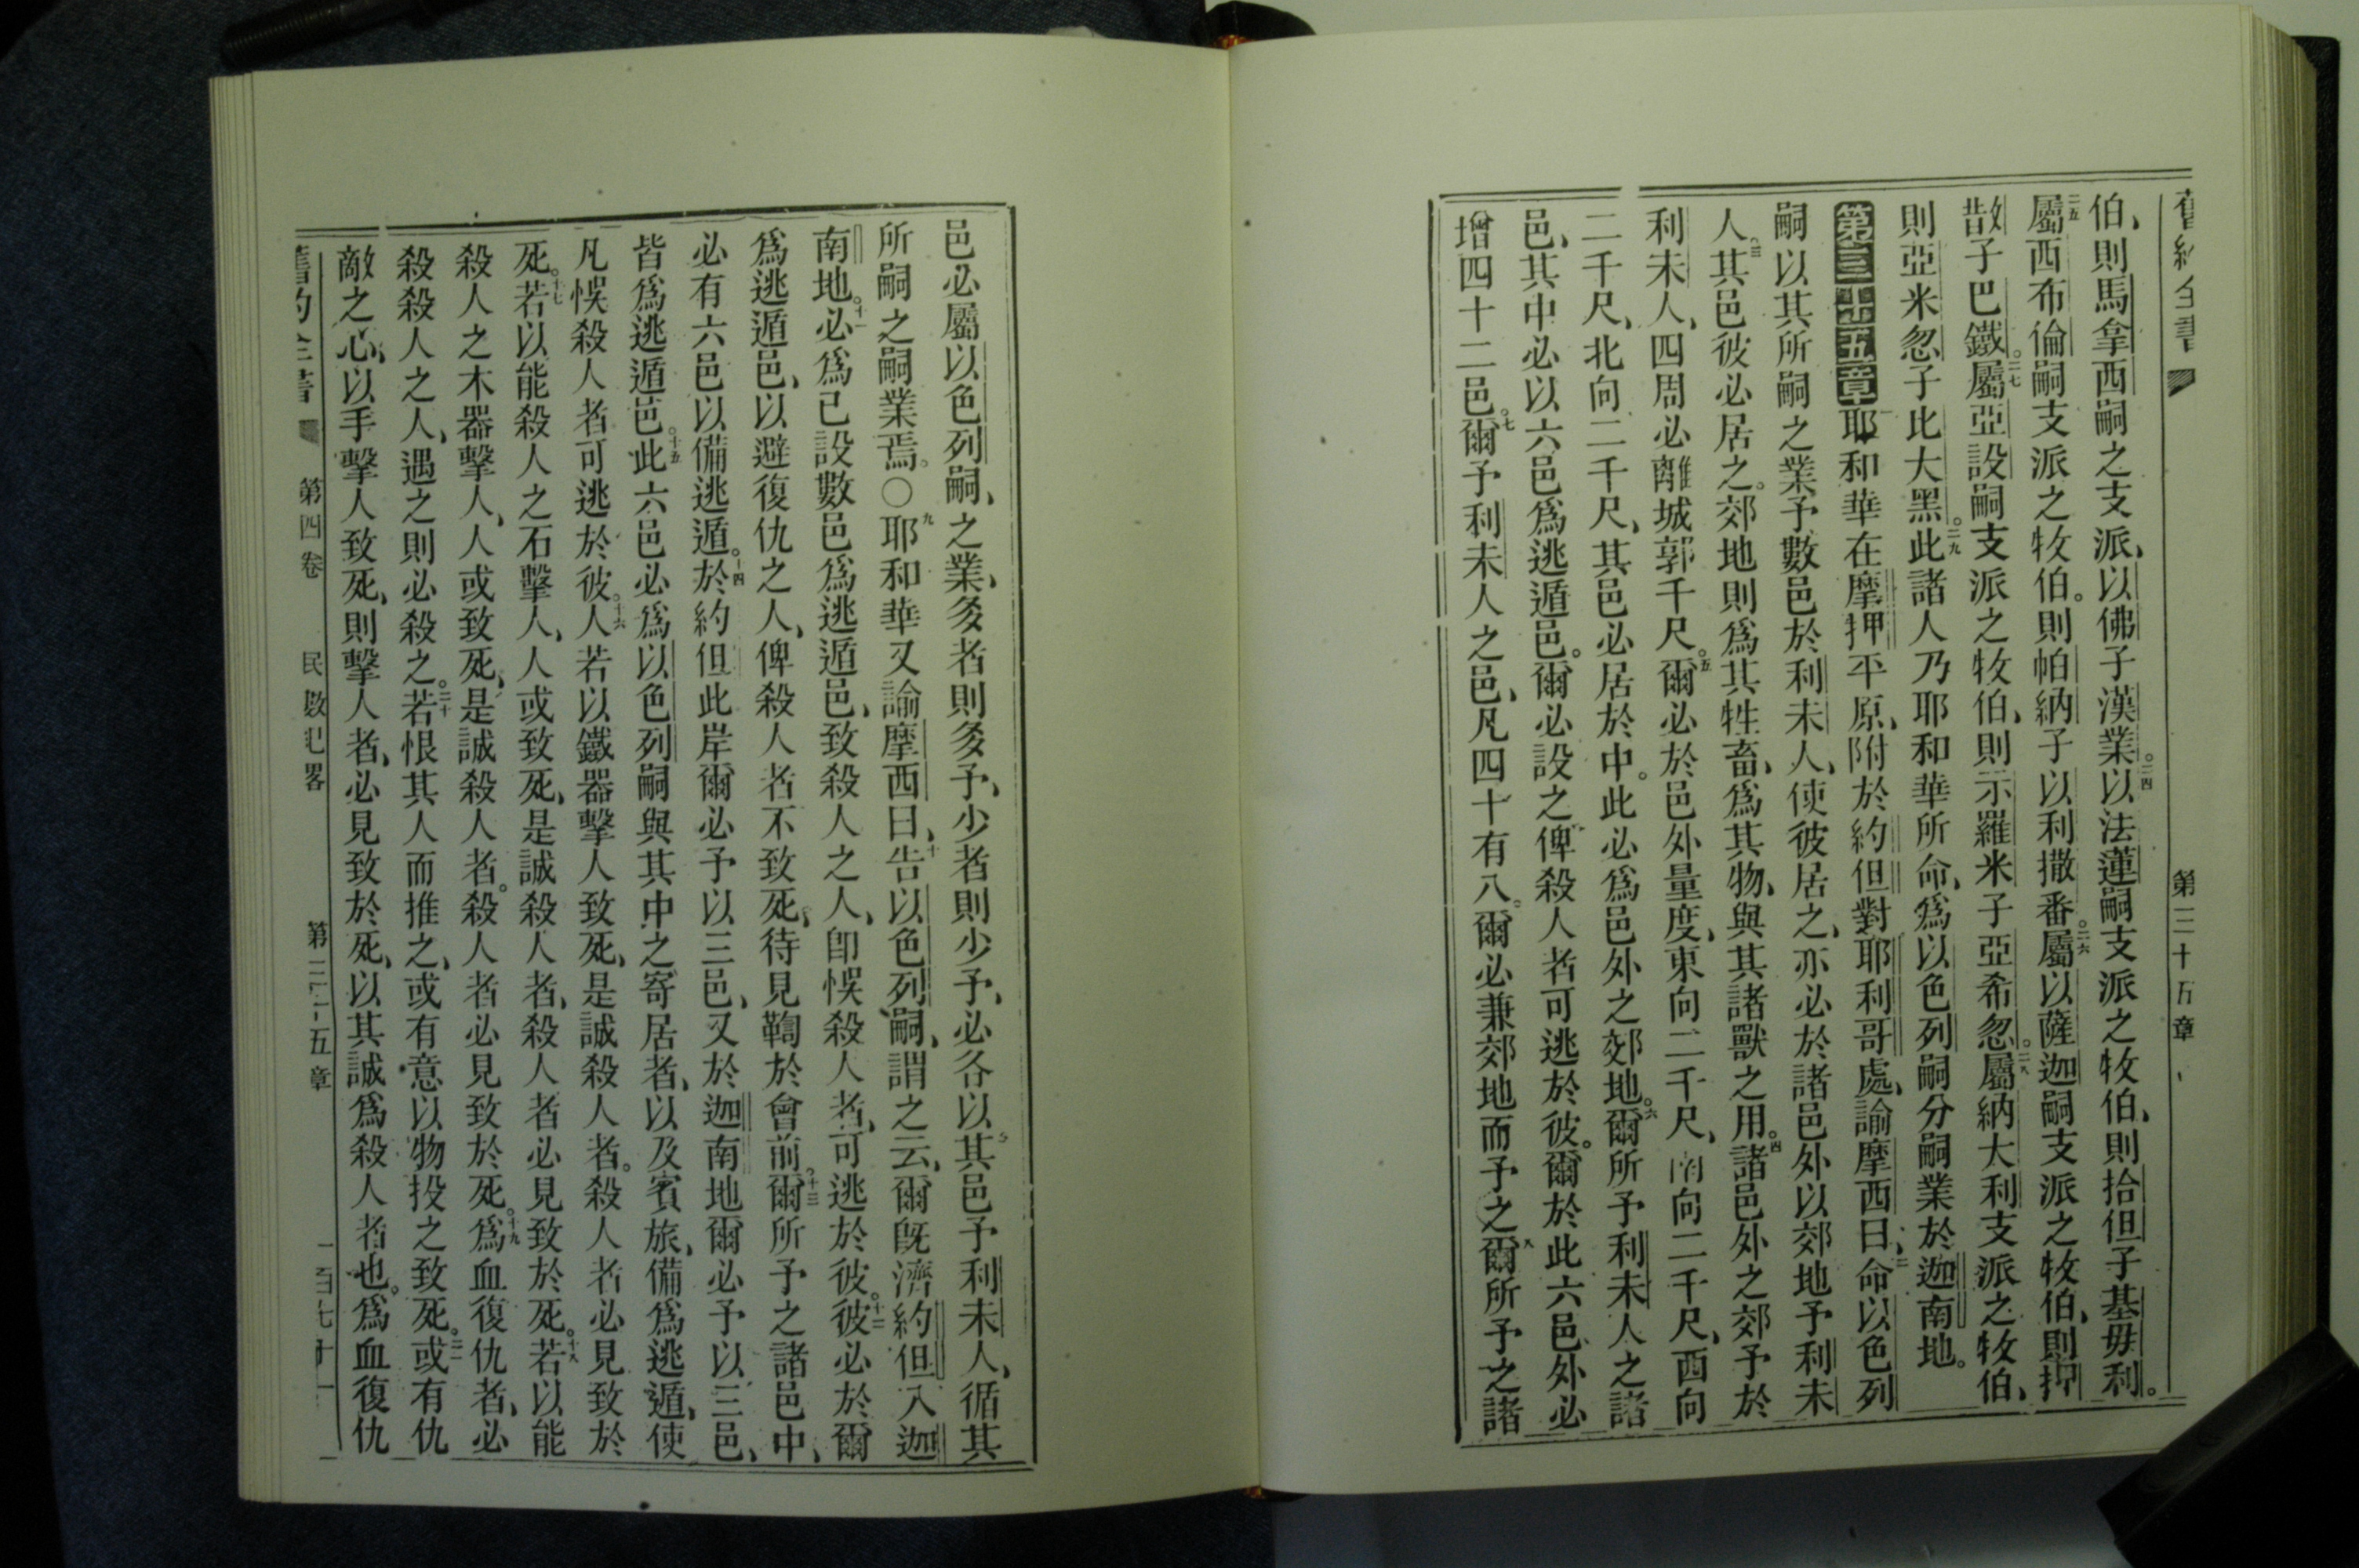 舊約全書 第三十五章
伯、則馬拿西嗣之支派、以佛子漢業。二四以法蓮嗣支派之牧伯、則拾但子基毋利。
二五屬西布倫嗣支派之牧伯。則帕納子以利撒番。二六屬以薩迦嗣支派之牧伯、則押
散子巴鐵。二七屬亞設嗣支派之牧伯、則示羅米子亞希忽。二八屬納大利支派之牧伯、
則亞米忽子比大黑。二九此諸人乃耶和華所命、爲以色列嗣分嗣業於迦南地。
第三十五章一耶和華在摩押平原、附於約但對耶利哥處、諭摩西曰、二命以色列
嗣以其所嗣之業予數邑於利未人、使彼居之、亦必於諸邑外以郊地予利未
人。三其邑彼必居之。郊地則爲其牲畜、爲其物、與其諸獸之用。四諸邑外之郊予於
利未人、四周必離城郭千尺。五爾必於邑外量度、東向二千尺、南向二千尺、西向
二千尺、北向二千尺、其邑必居於中。此必爲邑外之郊地。六爾所予利未人之諸
邑、其中必以六邑爲逃遁邑。爾必設之俾殺人者可逃於彼。爾於此六邑外必
增四十二邑。七爾予利未人之邑、凡四十有八。爾必兼郊地而予之八爾所予之諸
邑必屬以色列嗣、之業、多者則多予、少者則少予、必各以其邑予利未人、循其
所嗣之嗣業焉。○九耶和華又諭摩西曰、十告以色列嗣、謂之云、爾旣濟約但入迦
南地。十一必爲已設數邑爲逃遁邑、致殺人之人、卽悞殺人者、可逃於彼。十二彼必於爾
爲逃遁邑、以避復仇之人、俾殺人者不致死、待見鞫於會前。十三爾所予之諸邑中、
必有六邑以備逃遁。十四於約但此岸爾必予以三邑、又於迦南地爾必予以三邑、
皆爲逃遁邑。十五此六邑必爲以色列嗣與其中之寄居者、以及賓旅、備爲逃遁、使
凡悞殺人者可逃於彼。十六人若以鐵器擊人致死、是誠殺人者。殺人者必見致於
死。十七若以能殺人之石擊人、人或致死、是誠殺人者、殺人者必見致於死。十八若以能
殺人之木器擊人、人或致死、是誠殺人者。殺人者必見致於死。十九爲血復仇者、必
殺殺人之人、遇之則必殺之。二十若恨其人而推之、或有意以物投之致死。二一或有仇
敵之心、以手擊人致死、則擊人者、必見致於死、以其誠爲殺人者也。爲血復仇
舊約全書 第四卷 民數紀畧 第三十五章 一百七十一